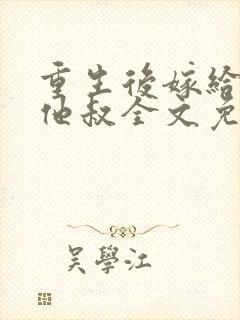 重生後嫁給
他叔全文免
吳學江